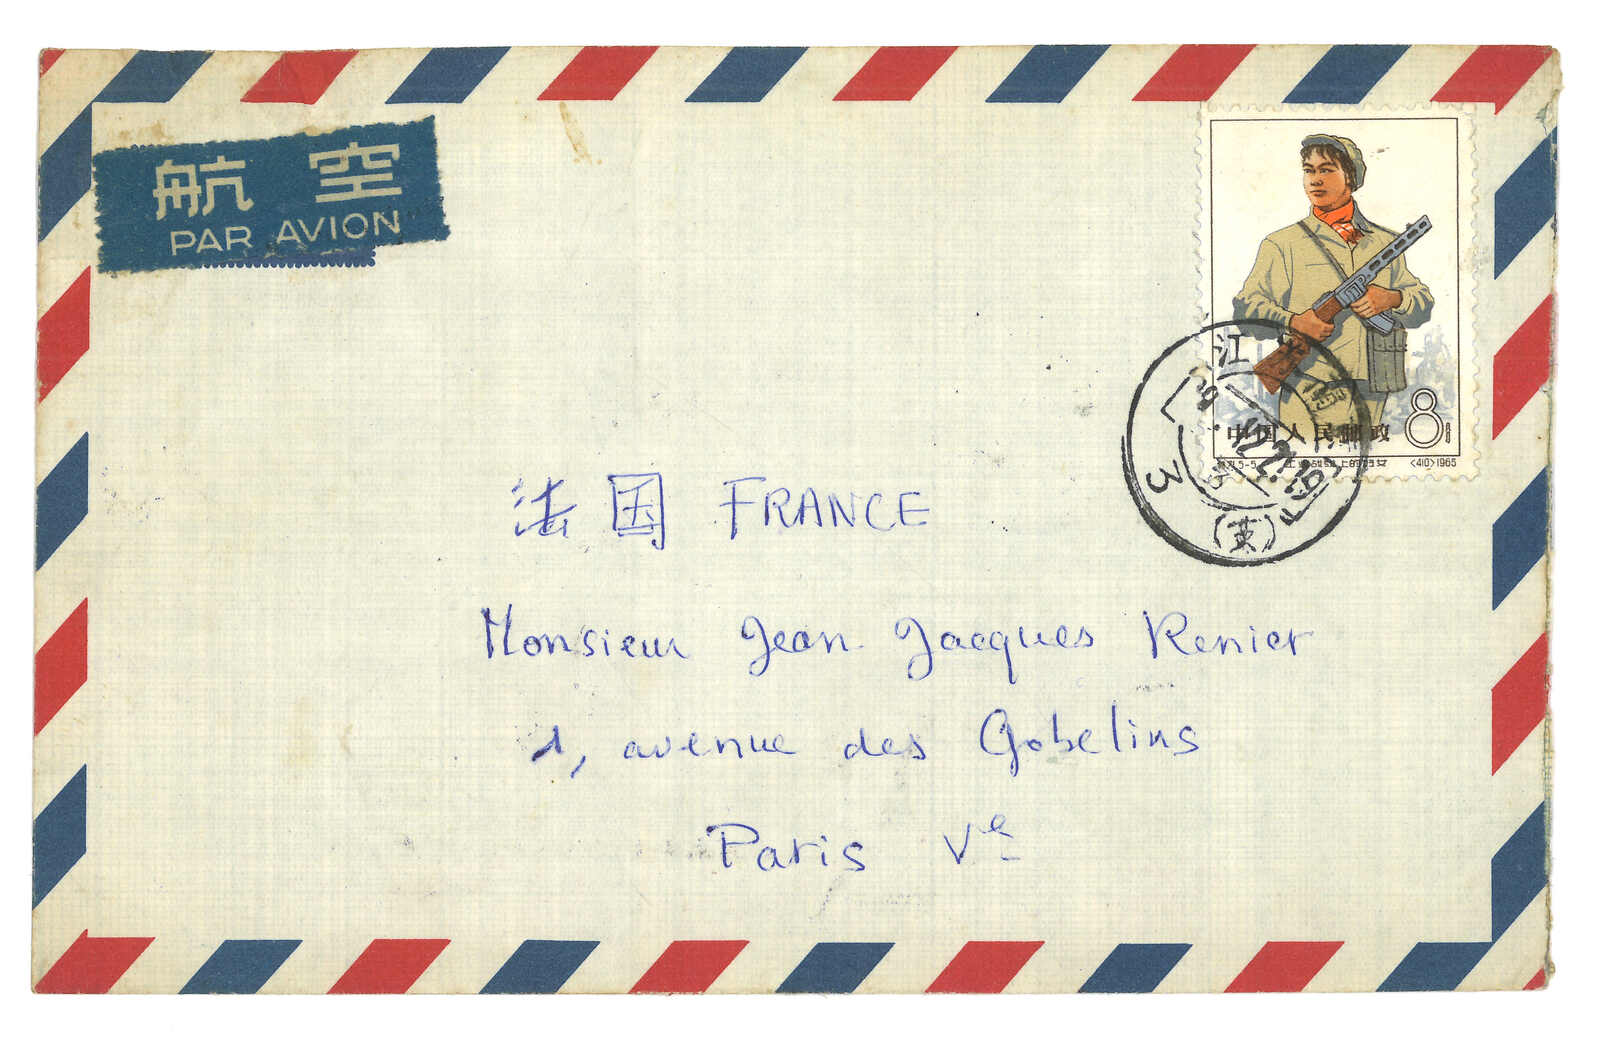 航空
PAR AVION
中国人民邮政 8
<410>1965
江
3
法国 FRANCE
Monsieur Jean-Jacques Renier
1, avenue des Gobelins
Paris Vᵉ